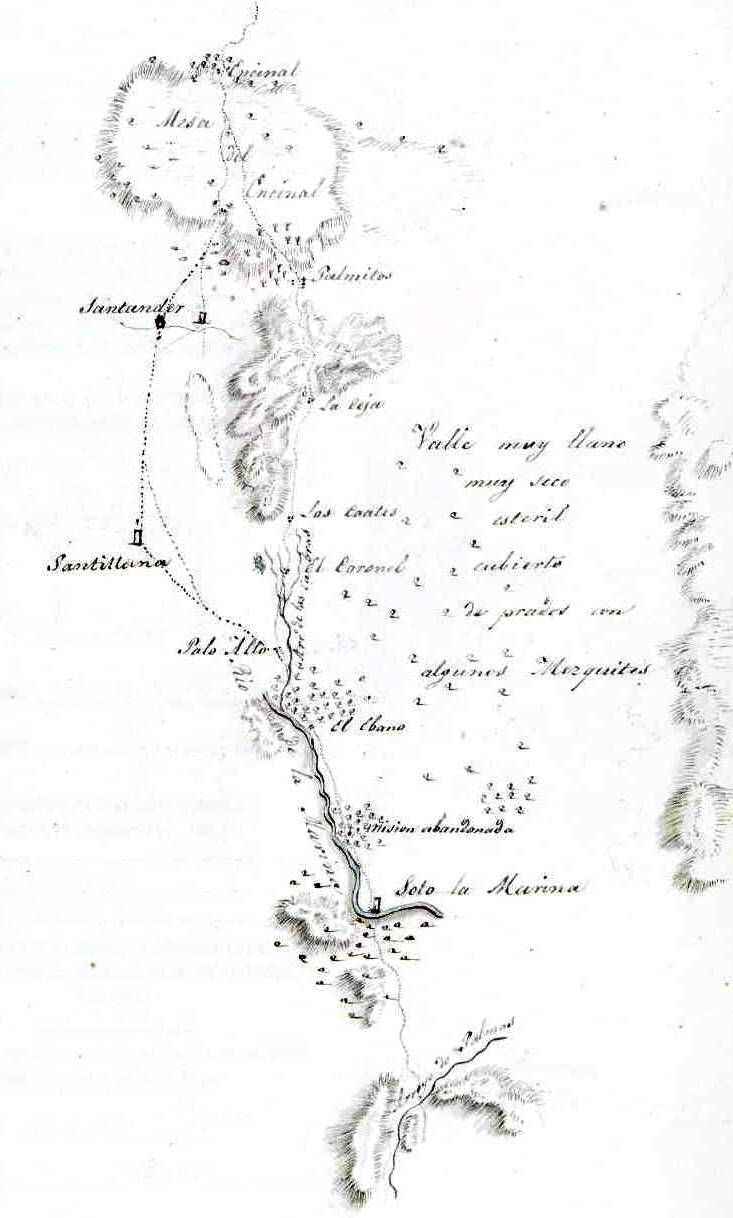 Encinal
Mesa
del
Encinal
Palmitos
Santander
La Ceja
Valle muy llano
muy seco
esteril
cubierto
de prados con
algunos Mezquites
Los Coates
El Coronel
Santillana
Palo Alto
El Ebano
Rio de la Marina
Mision abandonada
Soto la Marina
Arroyo de Palmas